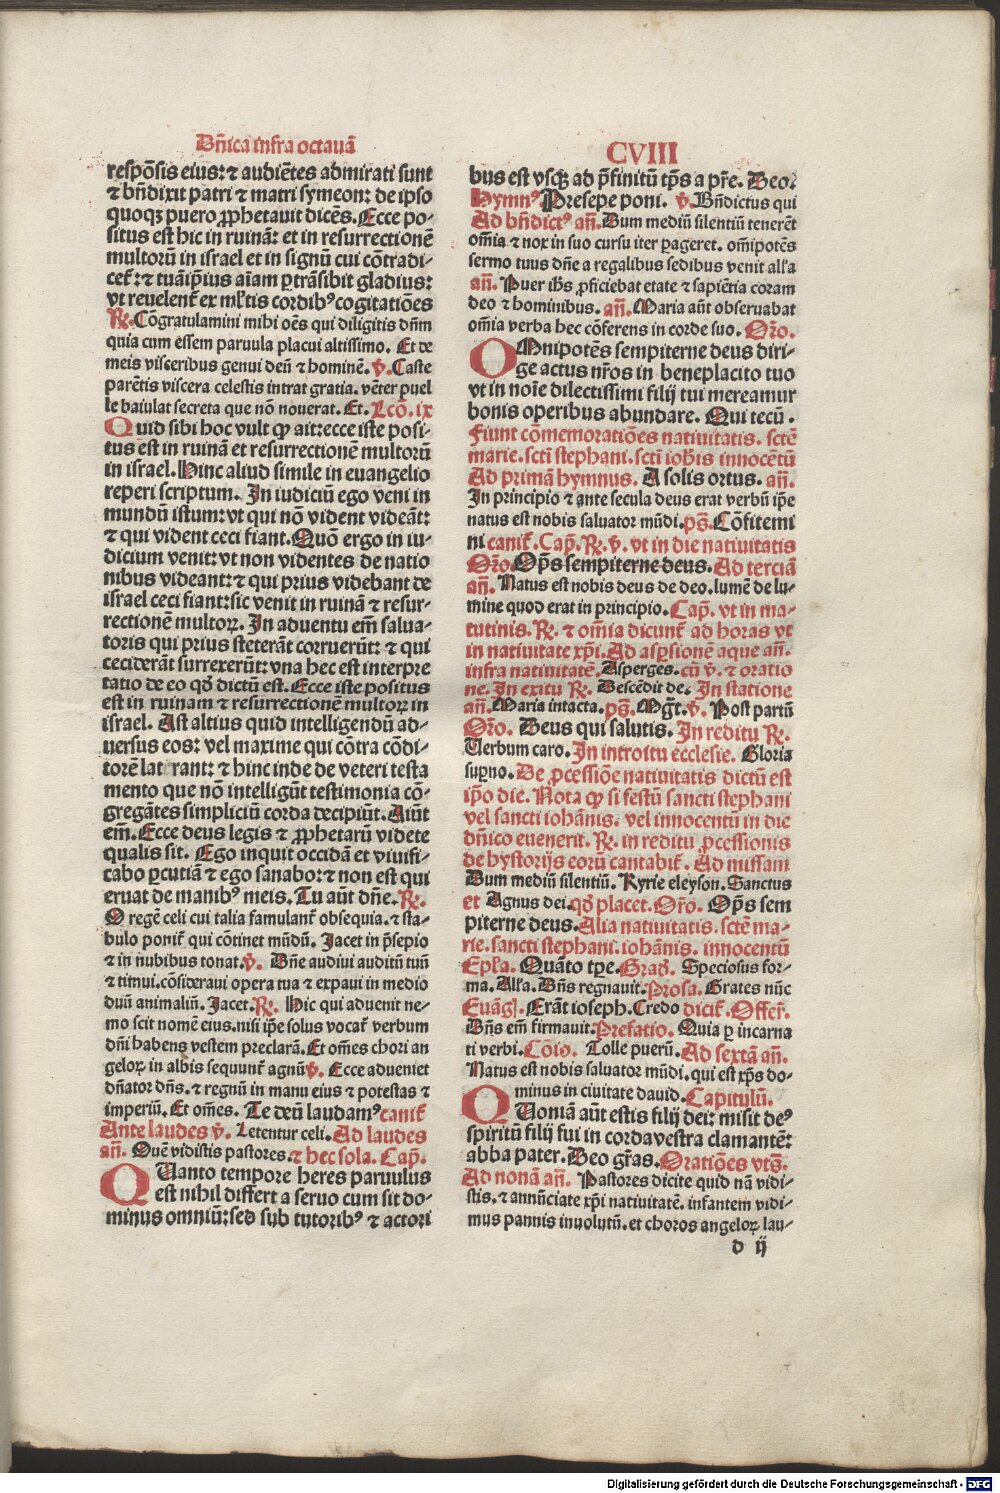 Dn̄ica infra octauā
CVIII
respōsis eius: ⁊ audiētes admirati sunt
⁊ bn̄dixit patri ⁊ matri symeon: de ipso
quoqꝫ puero ꝓphetauit dicēs. Ecce po-
situs est hic in ruinā: et in resurrectionē
multorū in israel et in signū cui cōtradi-
cet᷑: ⁊ tuā ip̄ius aīam ꝑtrāsibit gladius:
vt reuelent᷑ ex ml̓tis cordibꝰ cogitatiōes
R̷. Cōgratulamini mihi oēs qui diligitis dn̄m
quia cum essem paruula placui altissimo. Et de
meis visceribus genui deū ⁊ hominē. v̷. Caste
parētis viscera celestis intrat gratia. vēter puel
le baiulat secreta que nō nouerat. Et. Lcō. ix
Quid sibi hoc vult ꝙ ait: ecce iste posi-
tus est in ruinā et resurrectionē multorū
in israel. Hinc aliud simile in euangelio
reperi scriptum. In iudiciū ego veni in
mundū istum: vt qui nō vident videāt:
⁊ qui vident ceci fiant. Quō ergo in iu-
dicium venit: vt non videntes de natio
nibus videant: ⁊ qui prius videbant de
israel ceci fiant: sic venit in ruinā ⁊ resur-
rectionē multoꝝ. In aduentu em̄ salua-
toris qui prius steterāt corruerūt: ⁊ qui
ceciderāt surrexerūt: vna hec est interpre
tatio de eo qd̓ dictū est. Ecce iste positus
est in ruinam ⁊ resurrectionē multoꝝ in
israel. Ast altius quid intelligendū ad-
uersus eos: vel maxime qui cōtra cōdi-
torē lat rant: ⁊ hinc inde de veteri testa
mento que nō intelligūt testimonia cō-
gregātes simpliciū corda decipiūt. Aiūt
em̄. Ecce deus legis ⁊ ꝓphetarū videte
qualis sit. Ego inquit occidā et viuifi-
cabo ꝑcutiā ⁊ ego sanabo: ⁊ non est qui
eruat de manibꝰ meis. Tu aūt dn̄e. R̷.
O regē celi cui talia famulant᷑ obsequia. ⁊ sta-
bulo ponit᷑ qui cōtinet mūdū. Jacet in p̄sepio
⁊ in nubibus tonat. v̷. Dn̄e audiui auditū tuū
⁊ timui. cōsideraui opera tua ⁊ expaui in medio
duū animaliū. Jacet. R̷. Hic qui aduenit ne-
mo scit nomē eius. nisi ip̄e solus vocat᷑ verbum
dn̄i habens vestem preclarā. Et om̄es chori an
geloꝝ in albis sequunt᷑ agnū v̷. Ecce adueniet
dn̄ator dn̄s. ⁊ regnū in manu eius ⁊ potestas ⁊
imperiū. Et om̄es. Te deū laudamꝰ canit᷑
Ante laudes v̷. Letentur celi. Ad laudes
an̄. Quē vidistis pastores. ⁊ hec sola. Cap̄.
QUanto tempore heres paruulus
est nihil differt a seruo cum sit do-
minus omniū: sed sub tutoribꝰ ⁊ actori
bus est vsqꝫ ad p̄finitū tp̄s a pr̄e. Deo.
Hymnꝰ Presepe poni. v̷. Bn̄dictus qui
Ad bn̄dictꝰ an̄. Dum mediū silentiū tenerēt
om̄ia ⁊ nox in suo cursu iter ꝑageret. om̄ipotēs
sermo tuus dn̄e a regalibus sedibus venit all̓a
an̄. Puer ih̄s ꝓficiebat etate ⁊ sapiētia coram
deo ⁊ hominibus. an̄. Maria aūt obseruabat
om̄ia verba hec cōferens in corde suo. Or̄o.
OMnipotēs sempiterne deus diri-
ge actus nr̄os in beneplacito tuo
vt in noīe dilectissimi filij tui mereamur
bonis operibus abundare. Qui tecū.
Fiunt cōmemoratiōes natiuitatis. sctē
marie. scti stephani. scti ioh̄is innocētū
Ad primā hymnus. A solis ortus. an̄.
In principio ⁊ ante secula deus erat verbū ip̄e
natus est nobis saluator mūdi. ps̄. Cōfitemi
ni canit᷑. Cap̄. R̷. v̷. vt in die natiuitatis
Or̄o. Op̄s sempiterne deus. Ad terciā
an̄. Natus est nobis deus de deo. lumē de lu-
mine quod erat in principio. Cap̄. vt in ma-
tutinis. R̷. ⁊ om̄ia dicunt᷑ ad horas vt
in natiuitate xp̄i. Ad asꝑsionē aque an̄.
infra natiuitatē. Asperges. cū v̷. ⁊ oratio
ne. In exitu R̷. Descēdit de. In statione
an̄. Maria intacta. ps̄. Mgt̄. v̷. Post partū
Or̄o. Deus qui salutis. In reditu R̷.
Uerbum caro. In introitu ecclesie. Gloria
suꝑno. De ꝓcessiōe natiuitatis dictū est
ip̄o die. Nota ꝙ si festū sancti stephani
vel sancti iohānis. vel innocentū in die
dn̄ico euenerit. R̷. in reditu ꝓcessionis
de hystorijs eorū cantabit᷑. Ad missam
Dum mediū silentiū. Kyrie eleyson. Sanctus
et Agnus dei. qd̓ placet. Or̄o. Op̄s sem
piterne deus. Alia natiuitatis. sctē ma-
rie. sancti stephani. iohānis. innocentū
Epl̓a. Quāto tp̄e. Grad̓. Speciosus for-
ma. All̓a. Dn̄s regnauit. Prosa. Grates nūc
Euāgl̓. Erāt ioseph. Credo dicit᷑. Offer̄.
Dn̄s em̄ firmauit. Prefatio. Quia ꝑ incarna
ti verbi. Cōio. Tolle puerū. Ad sextā an̄.
Natus est nobis saluator mūdi. qui est xp̄s do-
minus in ciuitate dauid. Capitulū.
QUoniā aūt estis filij dei: misit deꝰ
spiritū filij sui in corda vestra clamantē:
abba pater. Deo gr̄as. Oratiōes vts̄.
Ad nonā an̄. Pastores dicite quid nā vidi-
stis. ⁊ annūciate xp̄i natiuitatē. infantem vidi-
mus pannis inuolutū. et choros angeloꝝ lau-
d ij
Digitalisierung gefördert durch die Deutsche Forschungsgemeinschaft - DFG